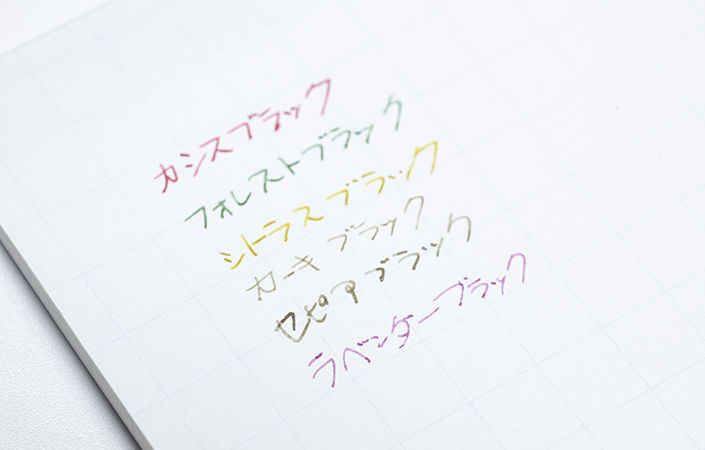 カシスブラック
フォレストブラック
シトラスブラック
カーキブラック
セピアブラック
ラベンダーブラック